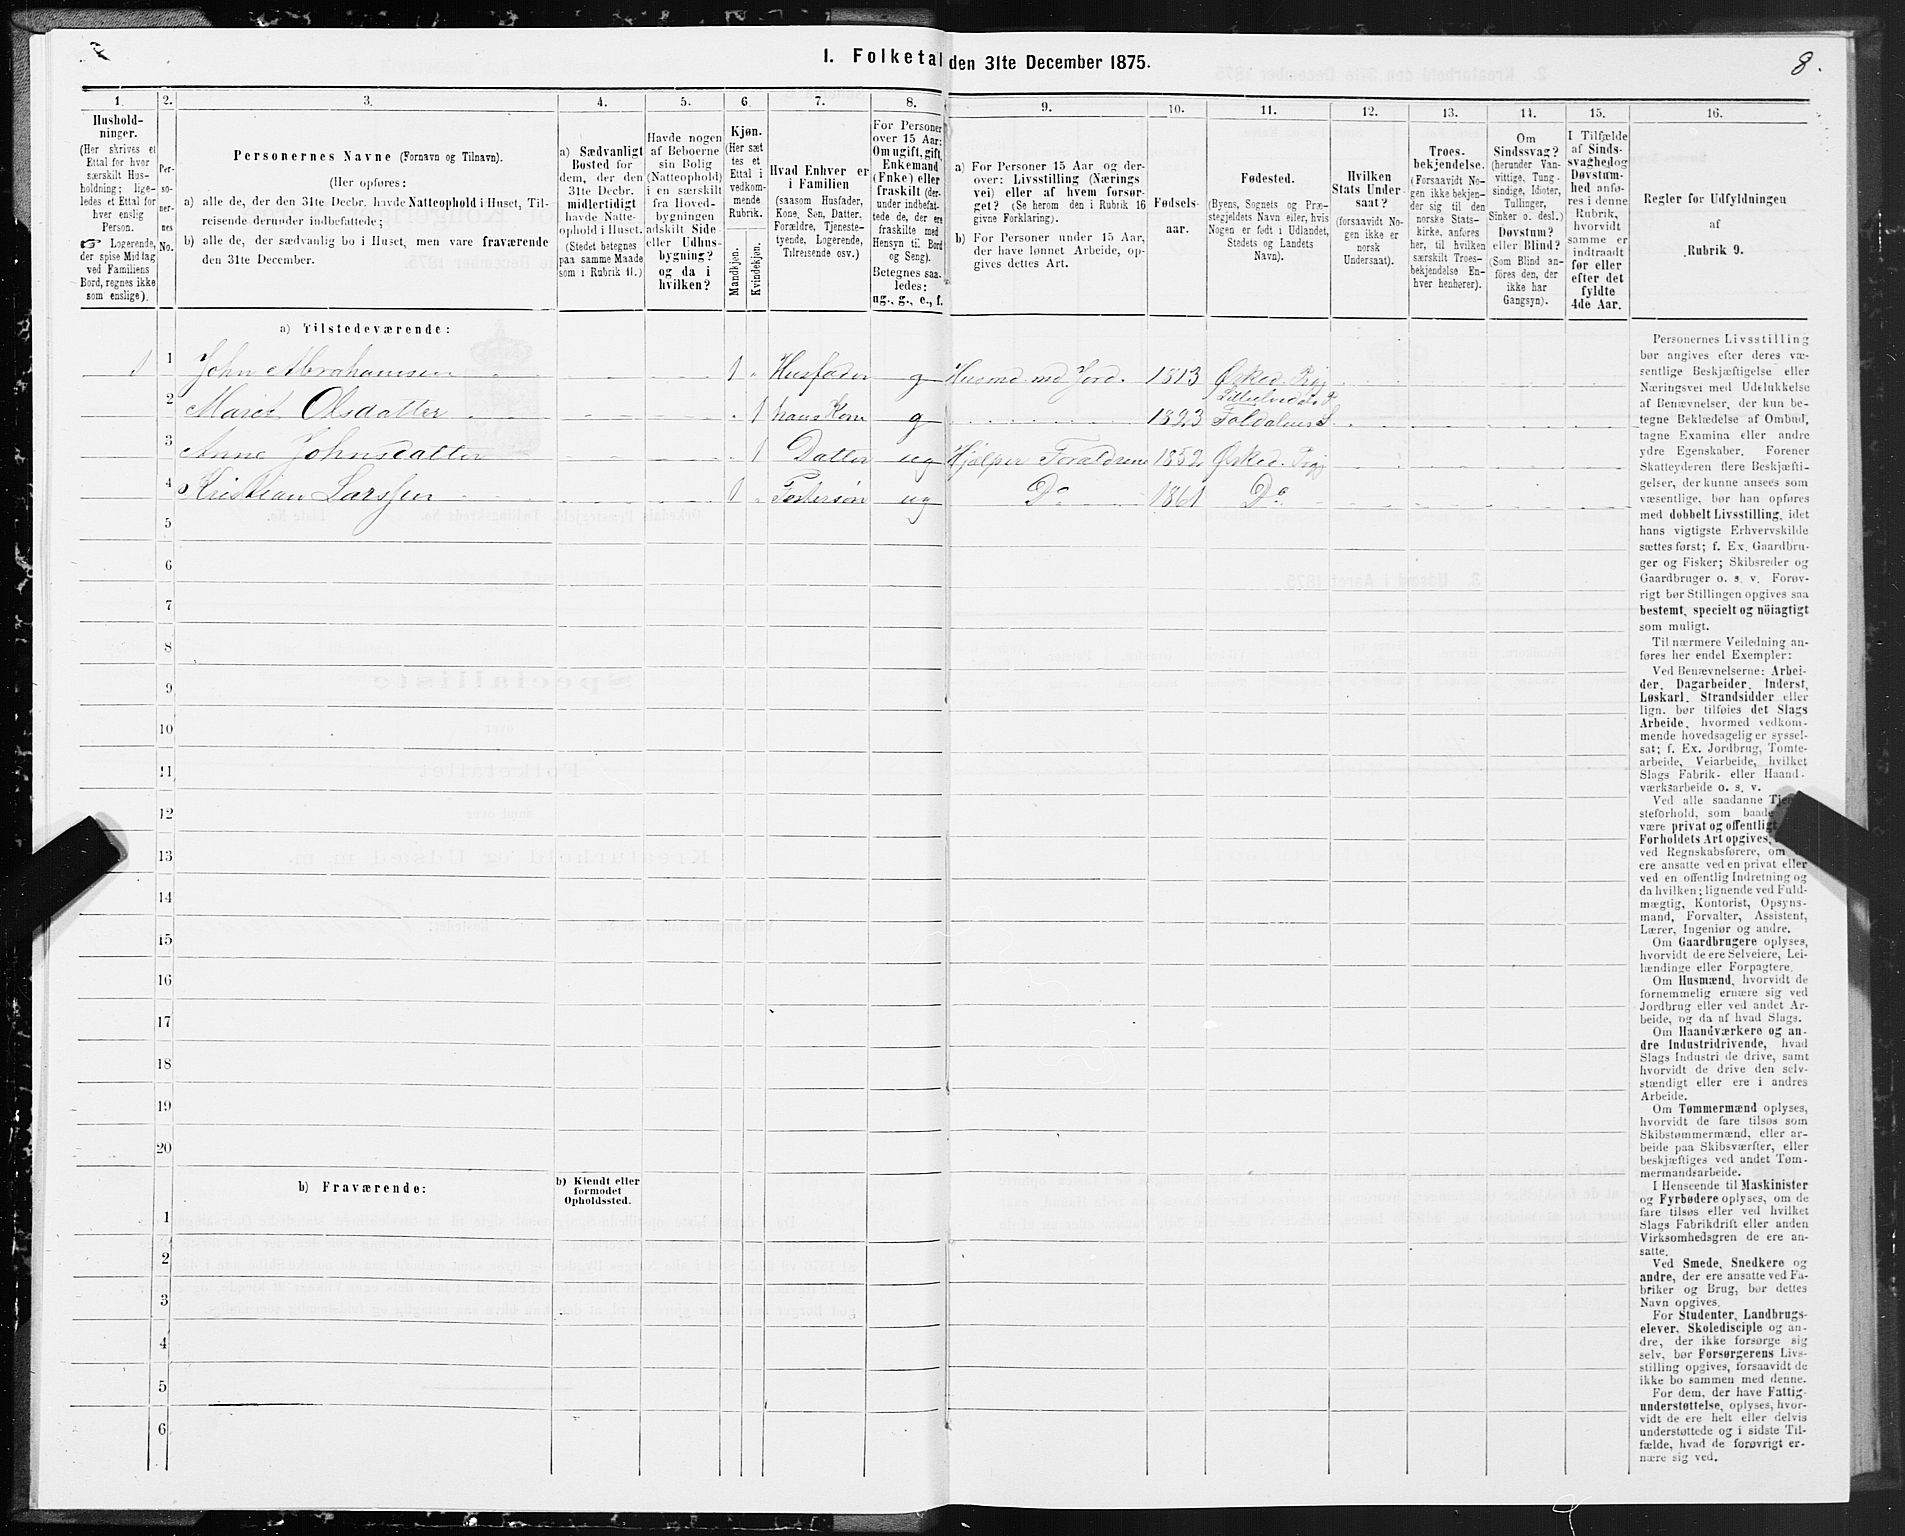 1. Folketal den 31te December 1875.
8.
1.
Hushold-
ninger.
(Her skrives et
Ettal for hver
særskilt Hus-
holdning; lige-
ledes et Ettal for
hver enslig
Person.
☞ Logerende,
der spise Middag
ved Familiens
Bord, regnes ikke
som enslige).
2.
Per-
so-
ner-
nes
No.
3.
Personernes Navne (Fornavn og Tilnavn).
(Her opføres:
a) alle de, der den 31te Decbr. havde Natteophold i Huset, Til-
reisende derunder indbefattede;
b) alle de, der sædvanlig bo i Huset, men vare fraværende
den 31te December.
4.
a) Sædvanligt
Bosted for
dem, der den
31te Decbr.
midlertidigt
havde Natte-
ophold i Huset.
(Stedet betegnes
paa samme Maade
som i Rubrik 11.)
5.
Havde nogen
af Beboerne
sin Bolig
(Natteophold)
i en særskilt
fra Hoved-
bygningen
adskilt Side-
eller Udhus-
bygning?
og da i
hvilken?
6.
Kjøn.
(Her sæt
tes et
Ettal i
vedkom-
mende
Rubrik.
Mandkjøn.
Kvindekjøn.
7.
Hvad Enhver er
i Familien
(saasom Husfader,
Kone, Søn, Datter,
Forældre, Tjeneste-
tyende, Logerende,
Tilreisende osv.)
8.
For Personer
over 15 Aar:
Om ugift, gift,
Enkemand
(Enke) eller
fraskilt (der-
under indbefat-
tede de, der ere
fraskilte med
Hensyn til Bord
og Seng).
Betegnes saa-
ledes:
ug., g., e., f.
9.
a) For Personer 15 Aar og der-
over: Livsstilling (Nærings
vei) eller af hvem forsør-
get? (Se herom den i Rubrik 16
givne Forklaring).
b) For Personer under 15 Aar,
der have lønnet Arbeide, op-
gives dettes Art.
10.
Fødsels-
aar.
11.
Fødested.
(Byens, Sognets og Præ-
stegjeldets Navn eller, hvis
Nogen er født i Udlandet,
Stedets og Landets
Navn).
12.
Hvilken
Stats Under-
saat?
(forsaavidt No-
gen ikke er
norsk
Undersaat).
13.
Troes-
bekjendelse.
(Forsaavidt No-
gen ikke bekjen-
der sig til den
norske Stats-
kirke, anføres
her, til hvilken
særskilt Troes-
bekjendelse En-
hver henhører).
14.
Om
Sindssvag?
(herunder Van-
vittige, Tung-
sindige, Idioter,
Tullinger,
Sinker o. desl.)
Døvstum?
eller Blind?
(Som Blind an-
føres den, der
ikke har
Gangsyn).
15.
I Tilfælde
af Sinds-
svaghed og
Døvstum-
hed anfø-
res i denne
Rubrik,
hvorvidt
samme er
indtraadt
før eller
efter det
fyldte
4de Aar.
16.
Regler for Udfyldningen
af
Rubrik 9.
a) Tilstedeværende:
1 1 John Abrahamsen 1 Husfader g Husmd med Jord. 1813 Ørked. Prgj
2 Marit Olsdatter 1 hans Kone g 1823
3 Anne Johnsdatter 1 Datter ug Hjælper Forældrene 1852 Ørked. Prgj
4 Kristian Larssen 1 Fostersøn ug Do 1861 Do
5
6
7
8
9
10
11
12
13
14
15
16
17
18
19
20
b) Fraværende:
b) Kjendt eller
formodet
Opholdssted.
1
2
3
4
5
6
Personernes Livsstilling
bør angives efter deres væ-
sentlige Beskjæftigelse eller
Næringsvei med Udelukkelse
af Benævnelser, der kun be-
tegne Beklædelse af Ombud,
tagne Examina eller andre
ydre Egenskaber. Forener
Skatteyderen flere Beskjæfti-
gelser, der kunne ansees som
væsentlige, bør han opføres
med dobbelt Livsstilling, idet
hans vigtigste Erhvervskilde
sættes først; f. Ex. Gaardbru-
ger og Fisker; Skibsreder og
Gaardbruger o. s. v. Forøv-
rigt bør Stillingen opgives saa
bestemt, specielt og nöiagtigt
som muligt.
Til nærmere Veiledning an-
føres her endel Exempler:
Ved Benævnelserne: Arbei-
der, Dagarbeider, Inderst,
Løskarl, Strandsidder eller
lign. bør tilføies det Slags
Arbeide, hvormed vedkom-
mende hovedsagelig er syssel-
sat; f. Ex. Jordbrug, Tomte-
arbeide, Veiarbeide, hvilket
Slags Fabrik- eller Haand-
værksarbeide o. s. v.
Ved alle saadanne
steforhold, som baade
være privat og offentligt
Forholdets Art opgives,
ved Regnskabsførere, om
ere ansatte ved en privat eller
ved en offentlig Indretning og
da hvilken; lignende ved Fuld-
mægtig, Kontorist, Opsyns-
mand, Forvalter, Assistent,
Lærer, Ingeniør og andre.
Om Gaardbrugere oplyses,
hvorvidt de ere Selveiere, Lei-
lændinge eller Forpagtere.
Om Husmænd, hvorvidt de
fornemmelig ernære sig ved
Jordbrug eller ved andet Ar-
beide, og da af hvad Slags.
Om Haandværkere og an-
dre Industridrivende, hvad
Slags Industri de drive, samt
hvorvidt de drive den selv-
stændigt eller ere i andres
Arbeide.
Om Tømmermænd oplyses,
hvorvidt de fare tilsøs som
Skibstømmermænd, eller ar-
beide paa Skibsværfter, eller
beskjæftiges ved andet Tøm-
mermandsarbeide.
I Henseende til Maskinister
og Fyrbødere oplyses, om de
fare tilsøs eller ved hvilket
Slags Fabrikdrift eller anden
Virksomhedsgren de ere an-
satte.
Ved Smede, Snedkere og
andre, der ere ansatte ved Fa-
briker og Brug, bør dettes
Navn opgives.
For Studenter, Landbrugs-
elever, Skoledisciple og an-
dre, der ikke forsørge sig
selv, bør Forsørgerens Livs-
stilling opgives, forsaavidt de
ikke bo sammen med denne.
For dem, der have Fattig-
understøttelse, oplyses, hvor-
vidt de ere helt eller delvis
understøttede og i sidste Til-
fælde, hvad de forøvrigt er-
nære sig ved.